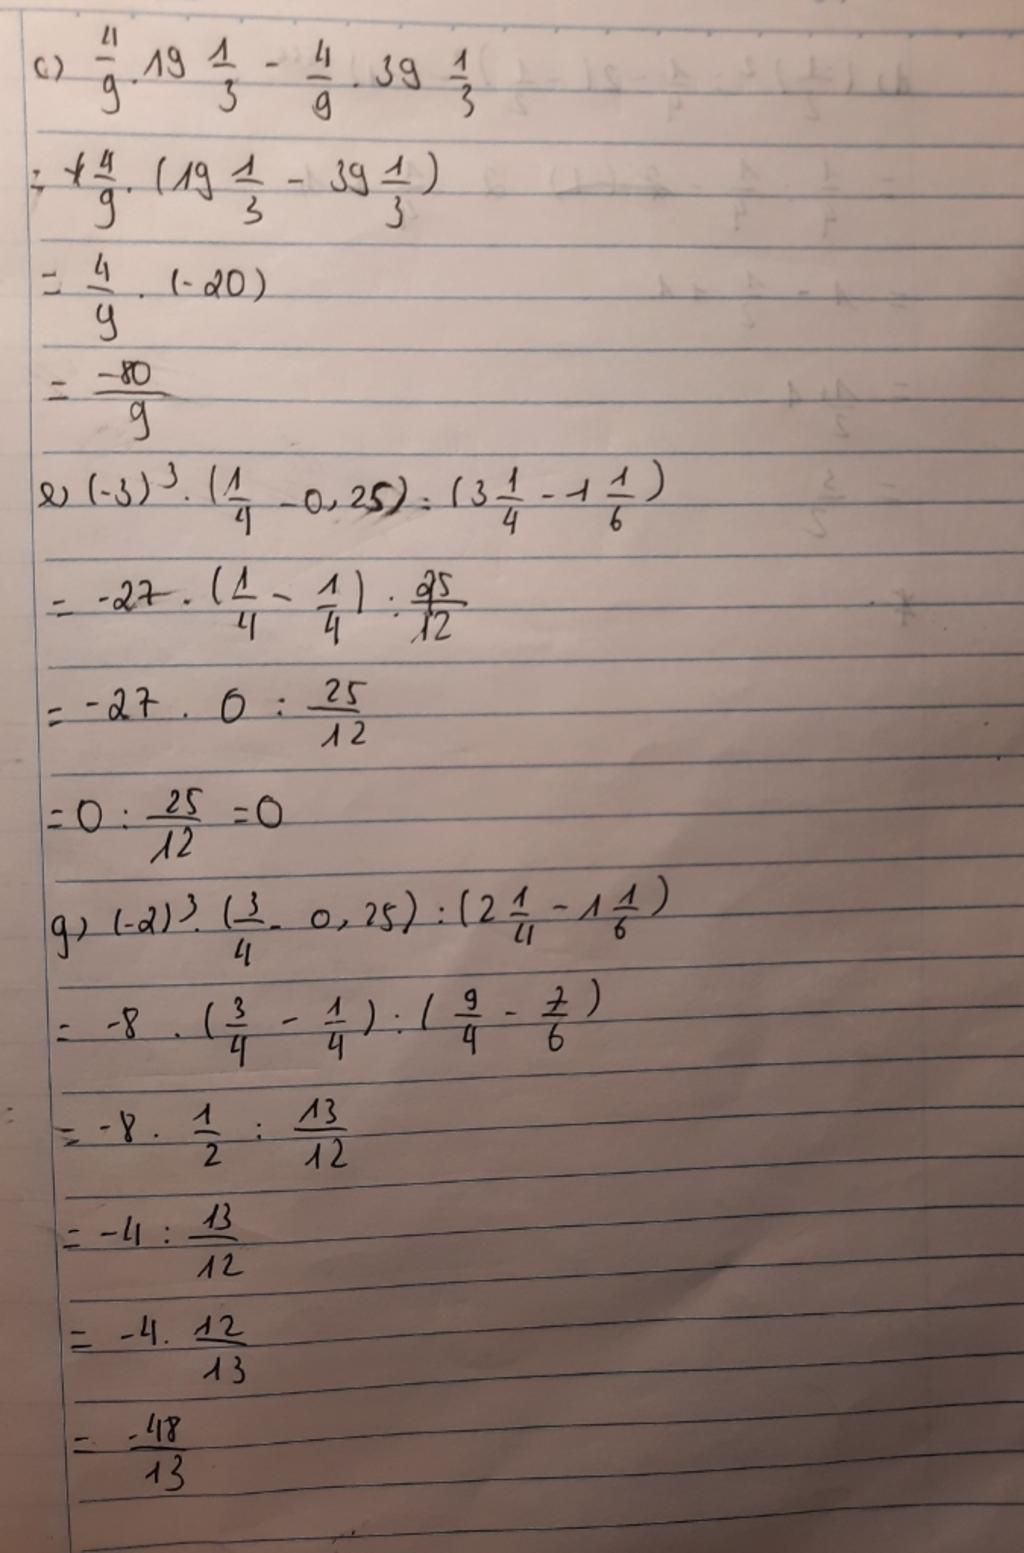 c) 4/9 . 19 1/3 - 4/9 . 39 1/3
= 4/9 . (19 1/3 - 39 1/3)
= 4/9 . (-20)
= -80/9
e) (-3)³ . (1/4 - 0,25) : (3 1/4 - 1 1/6)
= -27 . (1/4 - 1/4) : 25/12
= -27 . 0 : 25/12
= 0 : 25/12 = 0
g) (-2)³ . (3/4 - 0,25) : (2 1/4 - 1 1/6)
= -8 . (3/4 - 1/4) : (9/4 - 7/6)
= -8 . 1/2 : 13/12
= -4 : 13/12
= -4 . 12/13
= -48/13